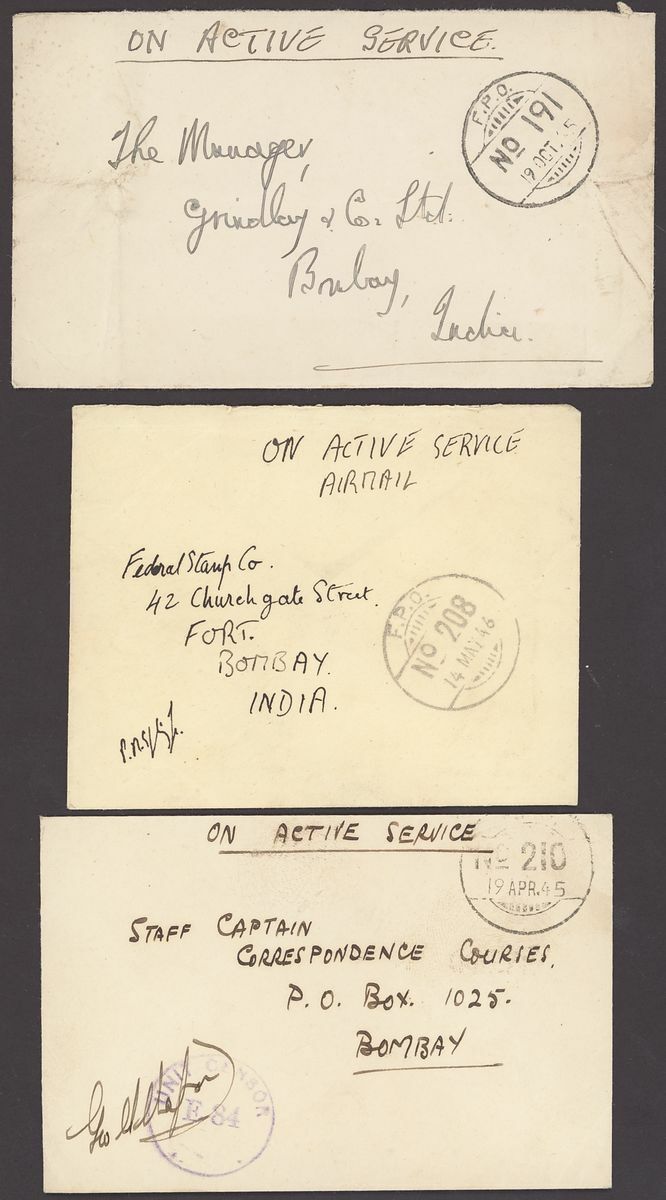 ON ACTIVE SERVICE.
F.P.O.
No 191
19 OCT. 45
The Manager,
Grindlay & Co. Ltd.
Bombay,
India.
ON ACTIVE SERVICE
AIRMAIL
Federal Stamp Co.
42 Churchgate Street.
FORT.
BOMBAY.
INDIA.
F.P.O.
No 208
14 MAY 46
ON ACTIVE SERVICE
No 210
19 APR. 45
STAFF CAPTAIN
CORRESPONDENCE COURSES,
P. O. BOX. 1025.
BOMBAY
UNIT CENSOR
E 84